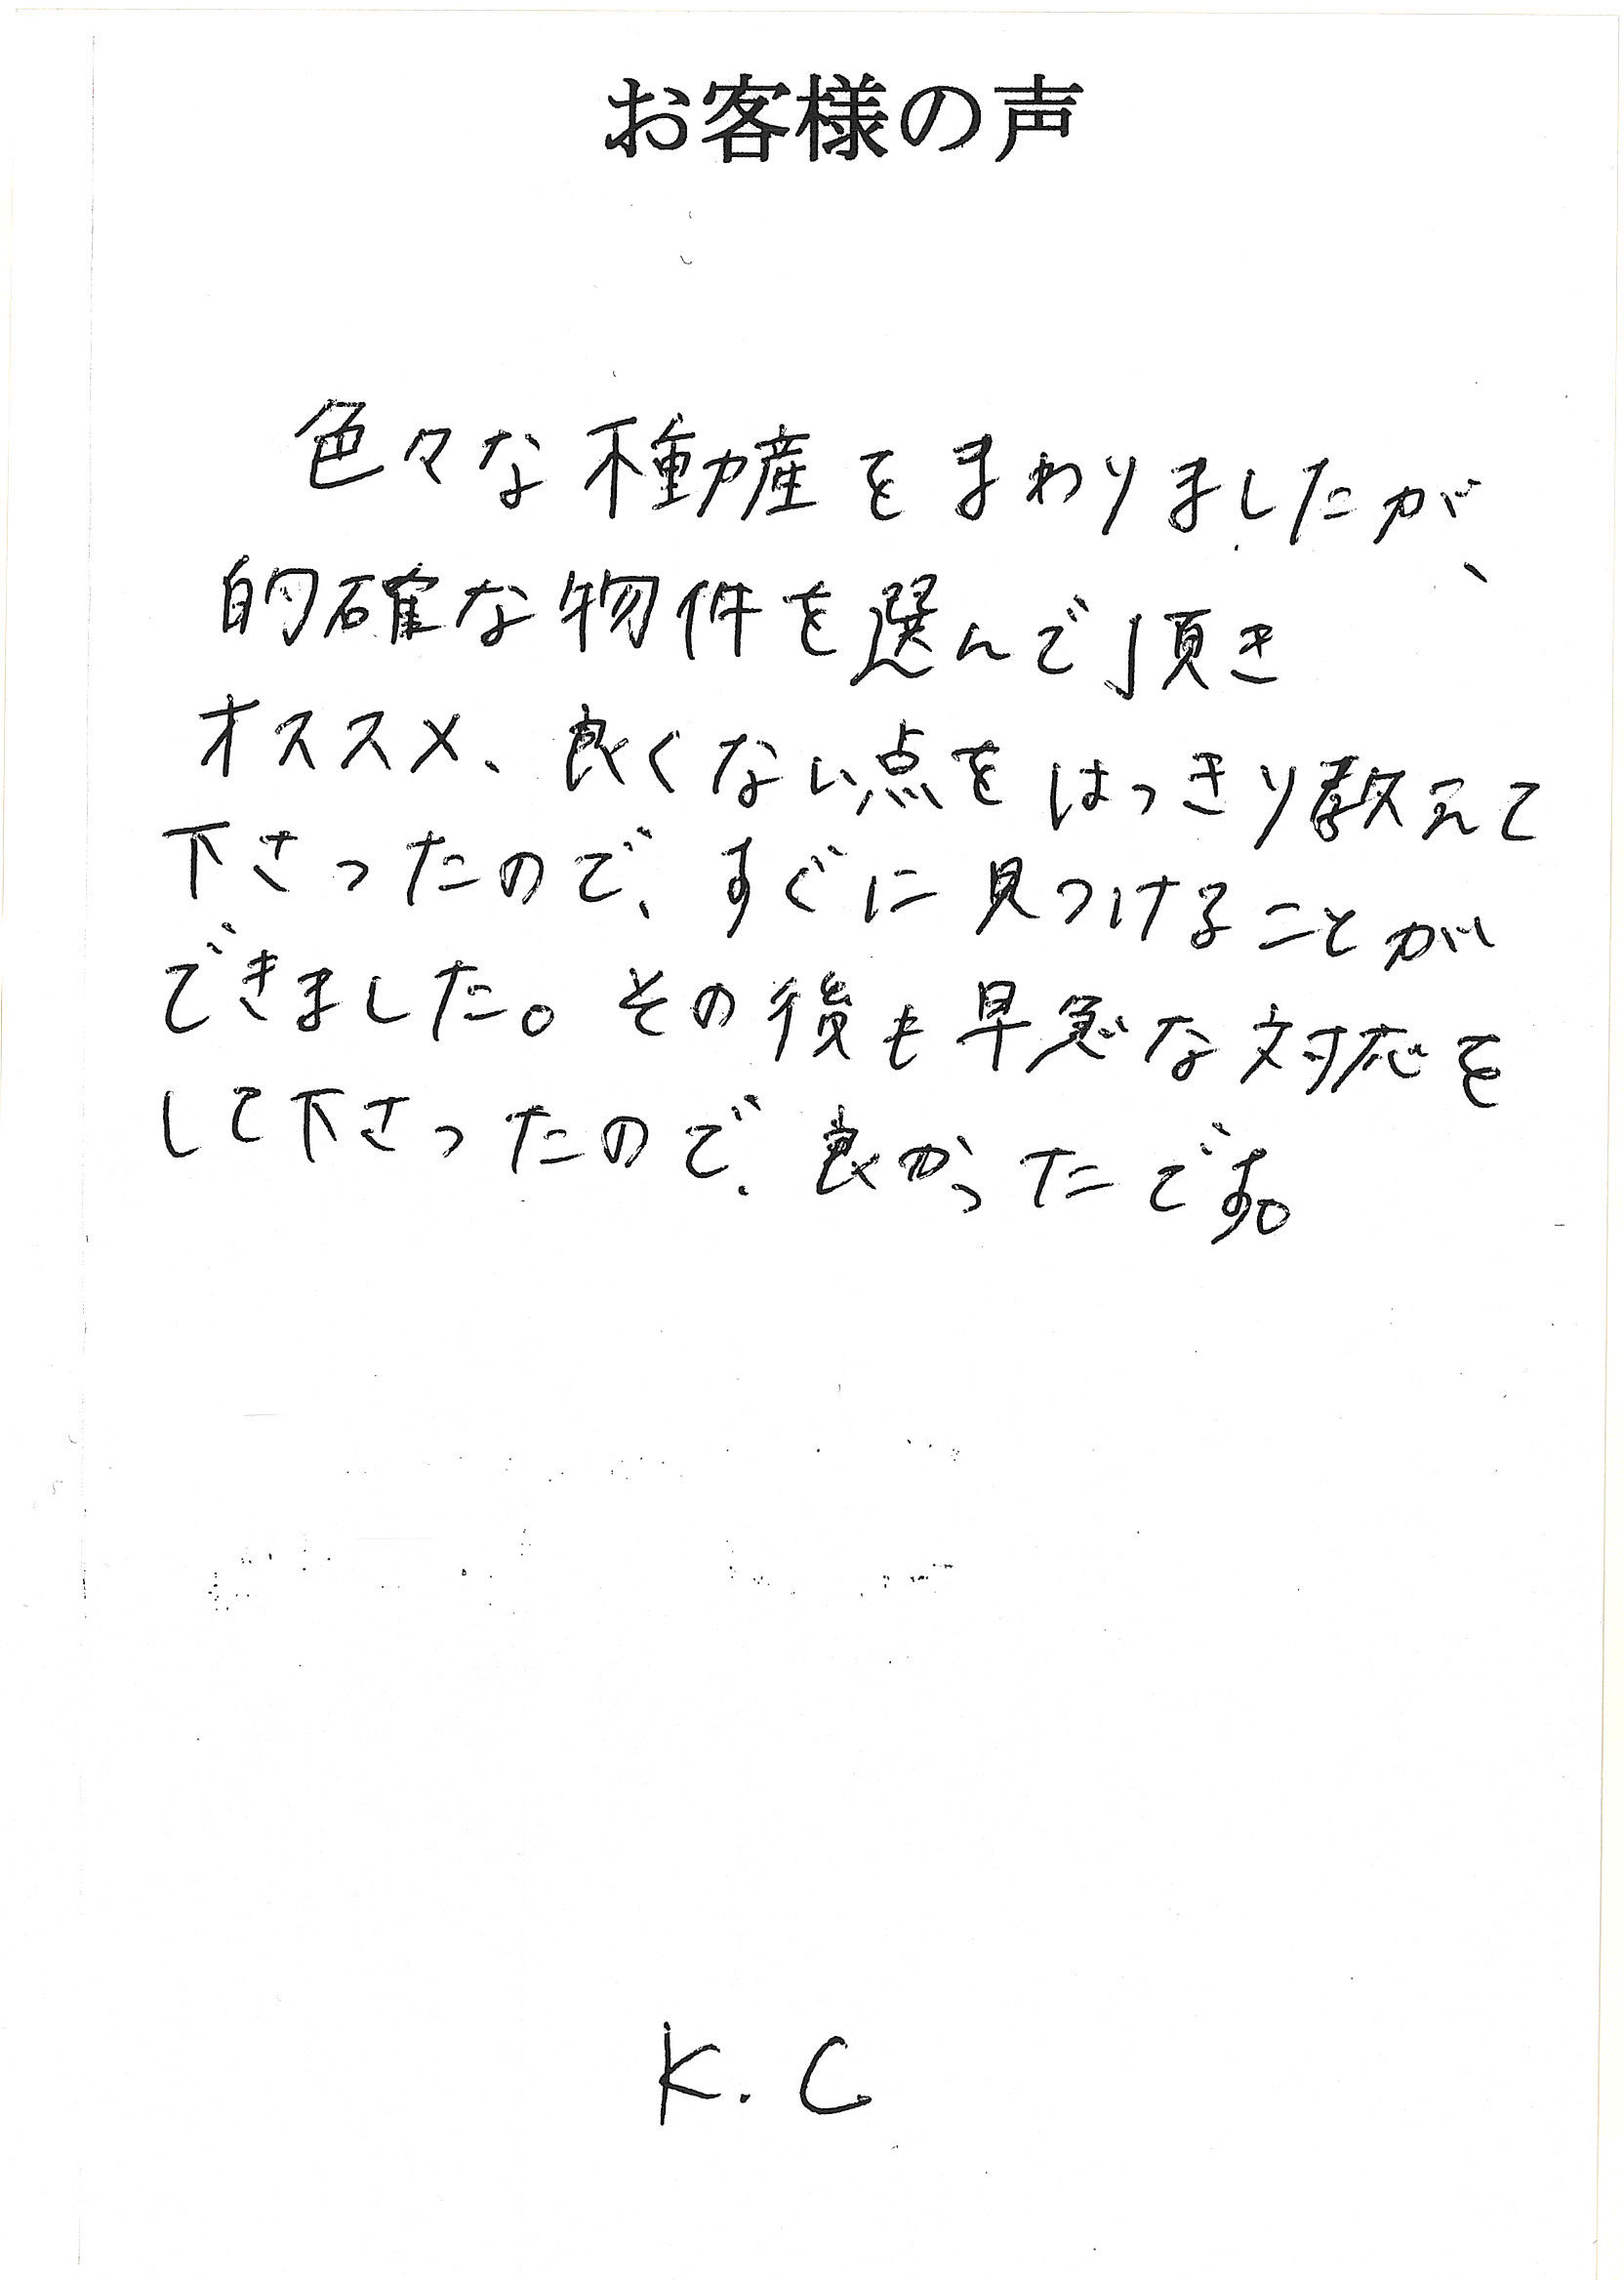 お客様の声
色々な不動産をまわりましたが、
的確な物件を選んで頂き
オススメ、良くない点をはっきり教えて
下さったので、すぐに見つけることが
できました。その後も早急な対応を
して下さったので、良かったです。
K.C